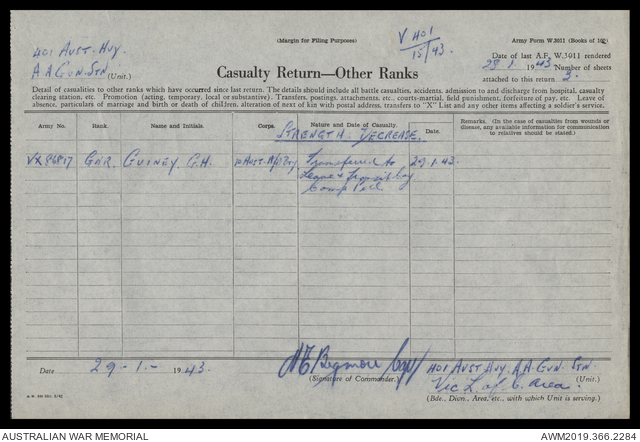 (Margin for Filing Purposes)
V 401
15/43.
Army Form W.3011 (Books of 100)
401 Aust. Hvy.
A A Gun. Stn (Unit.)
Date of last A.F. W.3011 rendered
28 1 1943 Number of sheets
attached to this return 2.
Casualty Return—Other Ranks
Detail of casualties to other ranks which have occurred since last return. The details should include all battle casualties, accidents, admission to and discharge from hospital, casualty
clearing station, etc. Promotion (acting, temporary, local or substantive). Transfers, postings, attachments, etc., courts-martial, field punishment, forfeiture of pay, etc. Leave of
absence, particulars of marriage and birth or death of children, alteration of next of kin with postal address, transfers to "X" List and any other items affecting a soldier's service.
Army No. Rank. Name and Initials. Corps. Nature and Date of Casualty. Date. Remarks. (In the case of casualties from wounds or
disease, any available information for communication
to relatives should be stated.)
STRENGTH DECREASE.
VX84817 Gnr. Guiney G.H. Aust. Transferred to 29.1.43.
Leave & Transit Coy
Camp
Date 29-1-1943.
(Signature of Commander.)
401 Aust Hvy. A A Gun. Stn (Unit.)
Vic L of C. Area.
(Bde., Divn., Area, etc., with which Unit is serving.)
AUSTRALIAN WAR MEMORIAL
AWM2019.366.2284